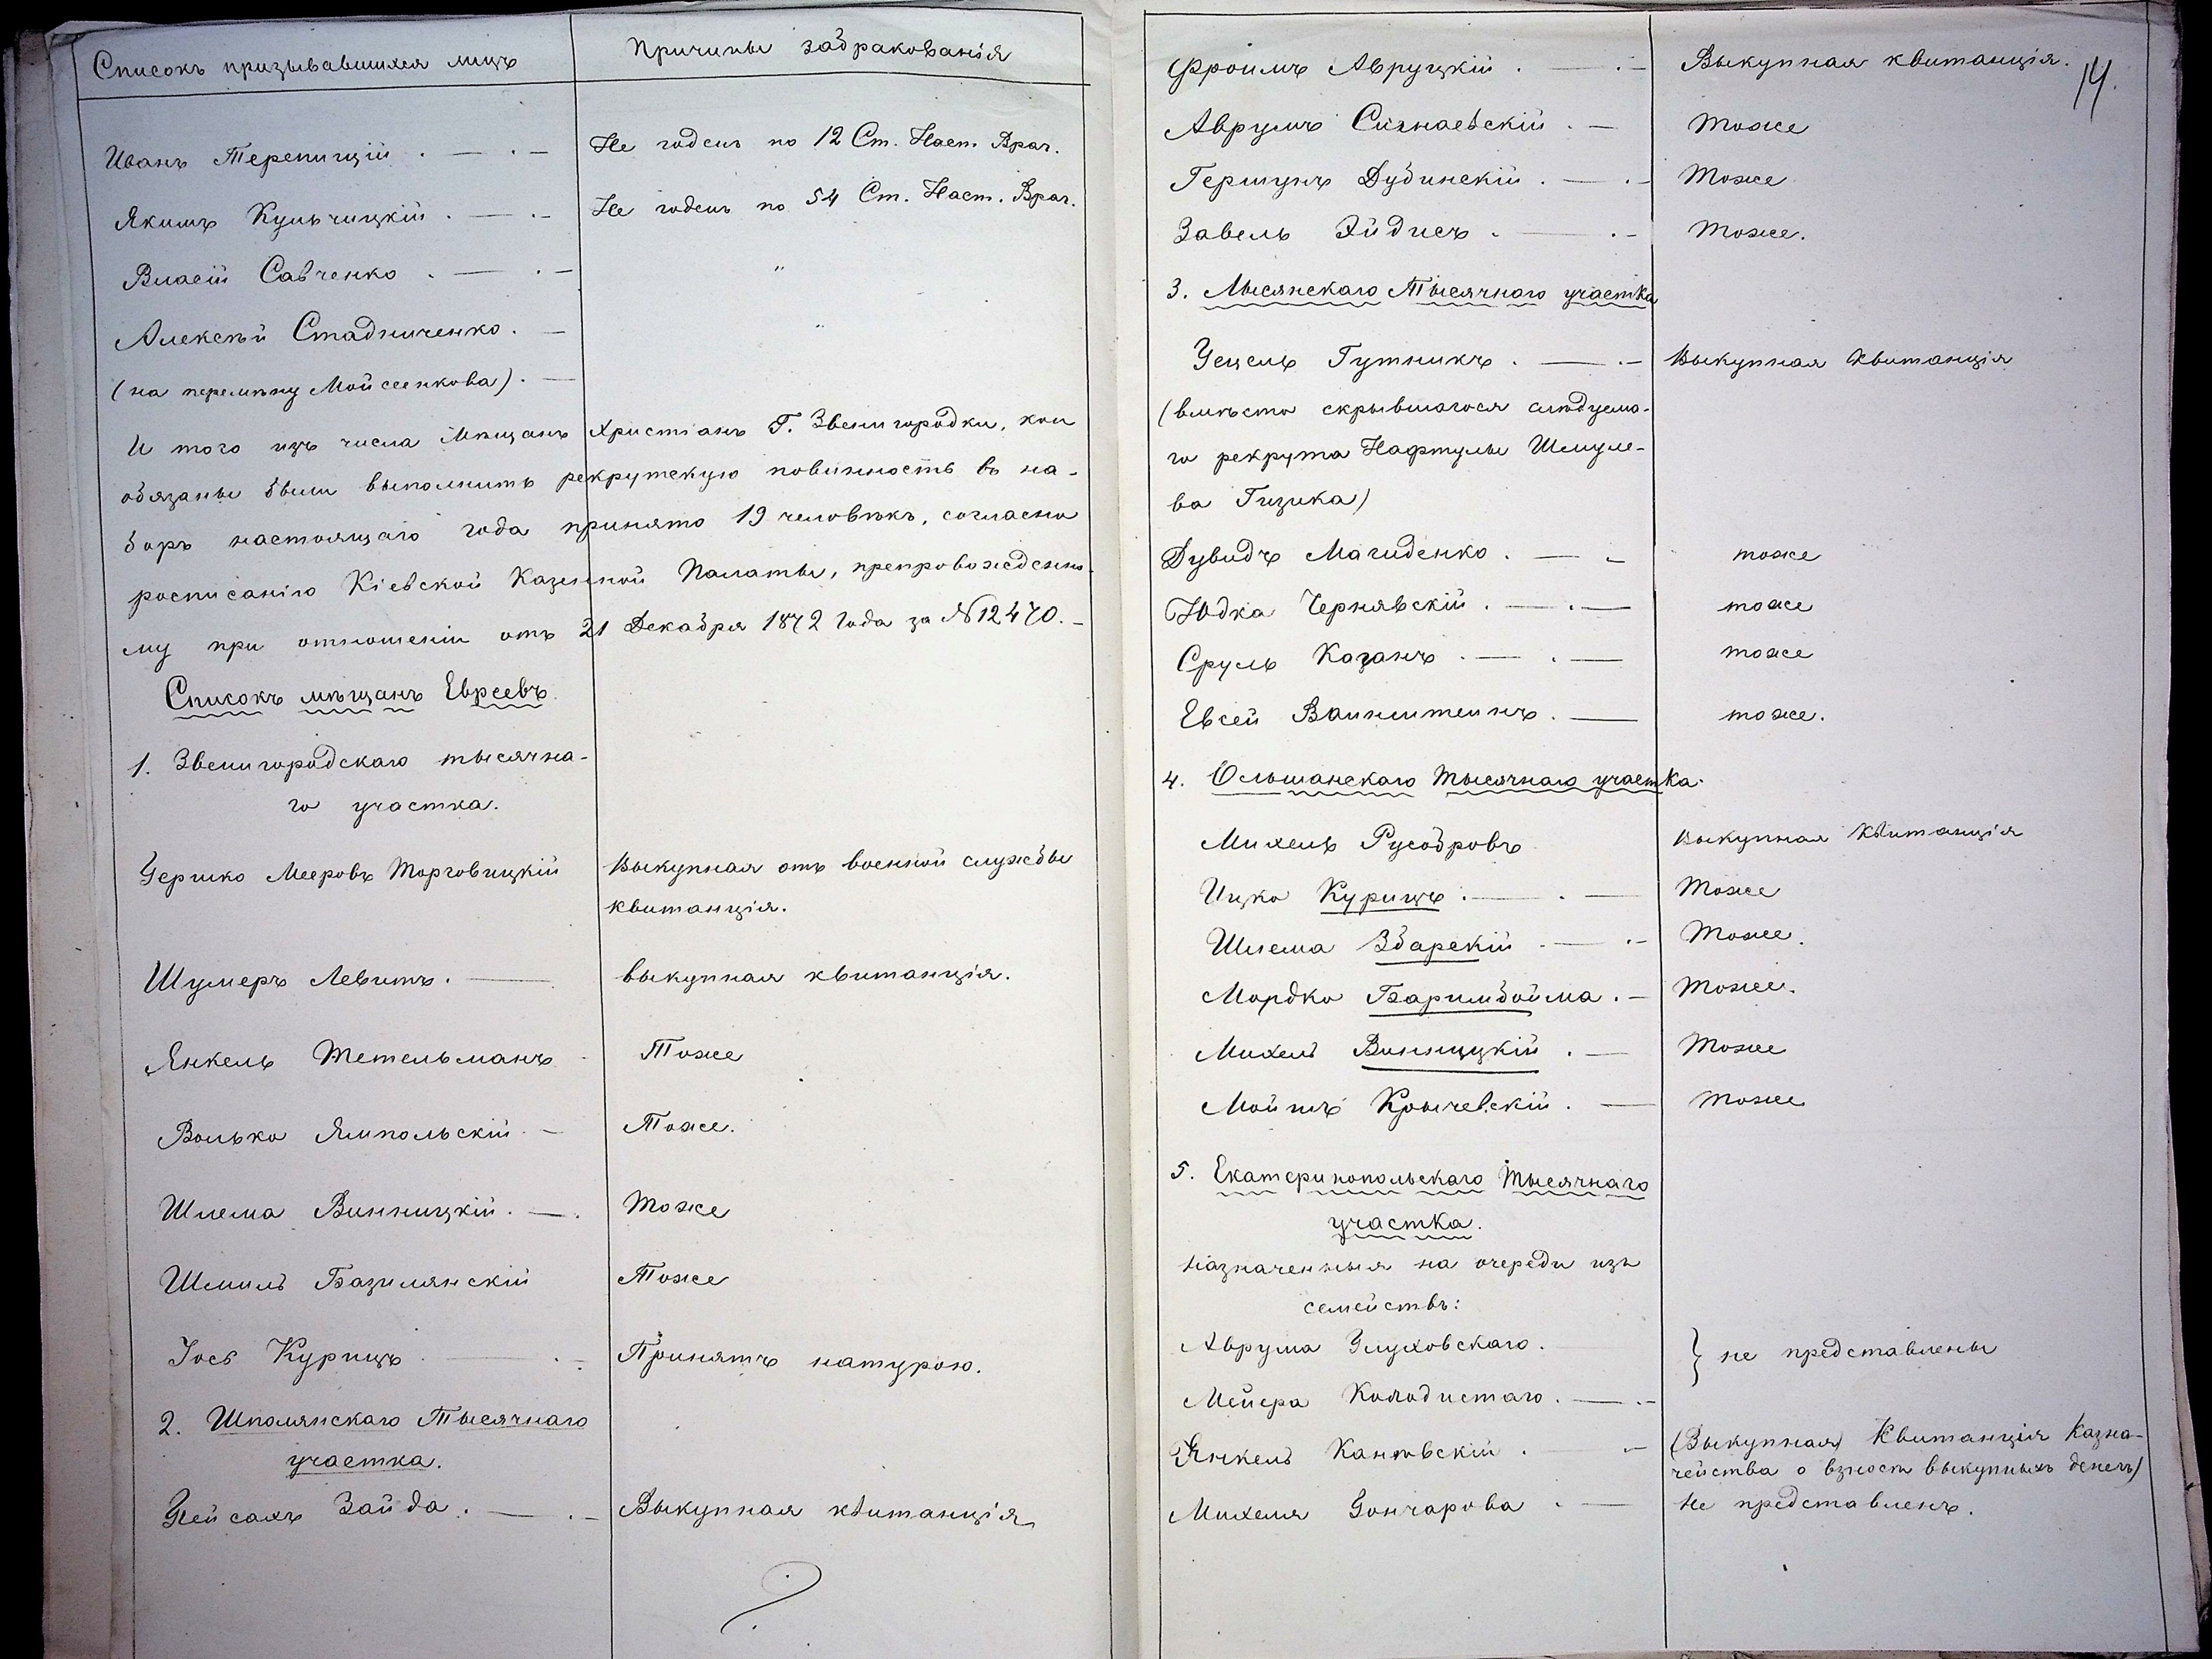 Списокъ призывавшихся лицъ
Причины забракованія
Иванъ Терепицій . — . —
Не годенъ по 12 Ст. Наст. Врач.
Якимъ Кульчицкій . — . —
Не годенъ по 54 Ст. Наст. Врач.
Власій Савченко . — . —
"
Алексѣй Стадниченко . —
"
(на перемѣну Мойсеенкова) . —
И того изъ числа Мѣщанъ Христіанъ Г. Звенигородки, кои
обязаны были выполнить рекрутскую повинность въ на-
боръ настоящаго года принято 19 человѣкъ, согласно
росписанію Кіевской Казенной Палаты, препровожденно-
му при отношеніи отъ 21 Декабря 1872 Года за № 12470. —
Списокъ мѣщанъ Евреевъ
1. Звенигородскаго тысячна-
го участка.
Гершко Мееровъ Торговицкій
Выкупная отъ военной службы
квитанція.
Шумеръ Левитъ . —
выкупная квитанція.
Янкель Тетельманъ
Тоже
Волько Ямпольскій . —
Тоже.
Шлема Винницкій . — .
Тоже
Шмиль Базилянскій
Тоже
Іось Курицъ . — . —
Принятъ натурою.
2. Шполянскаго Тысячнаго
участка.
Пейсахъ Зайда . — . —
Выкупная квитанція
14.
Фроимъ Авруцкій . — . —
Выкупная квитанція.
Аврумъ Синаевскій . —
Тоже
Гершунъ Дубинскій . — . —
Тоже
Завель Эйдисъ . — . —
Тоже.
3. Лысянскаго Тысячнаго участка
Уецель Гутникъ . — . —
Выкупная Квитанція
(вмѣсто скрывшагося слѣдуема-
го рекрута Нафтулы Шмуле-
ва Гизика)
Дувидъ Магиденко . — .
тоже
Юдка Чернявскій . — . —
тоже
Сруль Казанъ . — . —
тоже
Евсей Ваинштеинъ . —
тоже.
4. Ольшанскаго Тысячнаго участка.
Михель Русобровъ
Выкупная Квитанція
Ицко Курицъ . — . —
Тоже
Шлема Збарскій . — . —
Тоже.
Мордко Баримбойма . —
Тоже.
Михель Винницкій . —
Тоже
Мойшъ Крычевскій . —
Тоже
5. Екатеринопольскаго Тысячнаго
участка.
Назначенныя на очереди изъ
семействъ:
Аврума Глуховскаго.
} не представлены
Мейера Колодистаго . — . —
Янкель Каневскій . —
(Выкупная) Квитанція Казна-
чейства о взносѣ выкупныхъ денегъ)
Михеля Гончарова . —
Не представленъ.